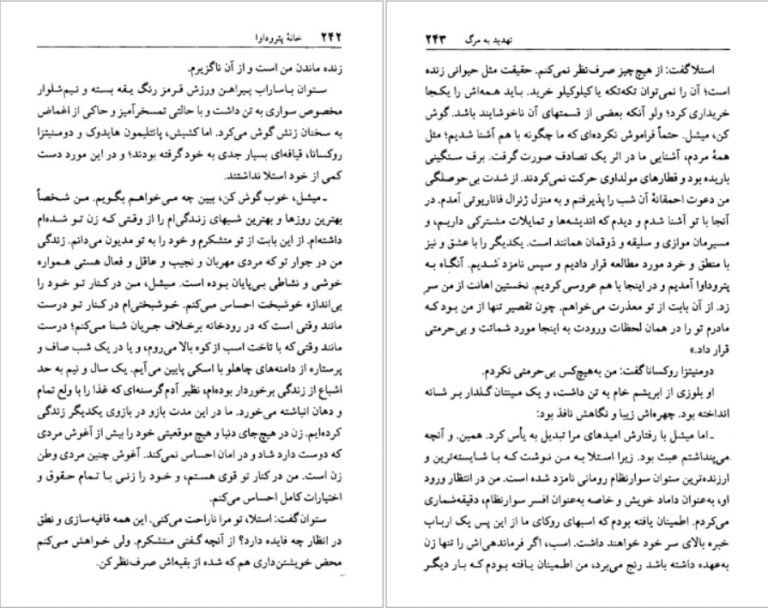 ۲۴۲ خانهٔ پتروداوا
زنده ماندن من است و از آن ناگزیرم.
ستوان باساراب پیراهن ورزش قرمز رنگ یقه بسته و نیم‌شلوار
مخصوص سواری به تن داشت و با حالتی تمسخرآمیز و حاکی از اغماض
به سخنان زنش گوش می‌کرد. اما کشیش، پانتلیمون هایدوک و دومنیتزا
روکسانا، قیافه‌ای بسیار جدی به خود گرفته بودند؛ و در این مورد دست
کمی از خود استلا نداشتند.
ـ میشل، خوب گوش کن، ببین چه می‌خواهم بگویم. من شخصاً
بهترین روزها و بهترین شبهای زندگی‌ام را از وقتی که زن تو شده‌ام
داشته‌ام. از این بابت از تو متشکرم و خود را به تو مدیون می‌دانم. زندگی
من در جوار تو که مردی مهربان و نجیب و عاقل و فعال هستی همواره
خوشی و نشاطی بی‌پایان بوده است. میشل، من در کنار تو خود را
بی‌اندازه خوشبخت احساس می‌کنم. خوشبختی‌ام در کنار تو درست
مانند وقتی است که در رودخانه برخلاف جریان شنا می‌کنم؛ درست
مانند وقتی که با تاخت اسب از کوه بالا می‌روم، و یا در یک شب صاف و
پرستاره از دامنه‌های چاهلو با اسکی پایین می‌آیم. یک سال و نیم به حد
اشباع از زندگی برخوردار بوده‌ام، نظیر آدم گرسنه‌ای که غذا را با ولع تمام
و دهان انباشته می‌خورد. ما در این مدت بازو در بازوی یکدیگر زندگی
کرده‌ایم. زن در هیچ‌جای دنیا و هیچ موقعیتی خود را بیش از آغوش مردی
که دوست دارد شاد و در امان احساس نمی‌کند. آغوش چنین مردی وطن
زن است. من در کنار تو قوی هستم، و خود را زنی با تمام حقوق و
اختیارات کامل احساس می‌کنم.
ستوان گفت: استلا، تو مرا ناراحت می‌کنی. این همه قافیه‌سازی و نطق
در انظار چه فایده دارد؟ از آنچه گفتی متشکرم. ولی خواهش می‌کنم
محض خویشتن‌داری هم که شده از بقیه‌اش صرف‌نظر کن.
تهدید به مرگ ۲۴۳
استلا گفت: از هیچ چیز صرف‌نظر نمی‌کنم. حقیقت مثل حیوانی زنده
است؛ آن را نمی‌توان تکه‌تکه یا کیلوکیلو خرید. باید همه‌اش را یکجا
خریداری کرد؛ ولو آنکه بعضی از قسمتهای آن ناخوشایند باشد. گوش
کن، میشل. حتماً فراموش نکرده‌ای که ما چگونه با هم آشنا شدیم؛ مثل
همهٔ مردم، آشنایی ما در اثر یک تصادف صورت گرفت. برف سنگینی
باریده بود و قطارهای مولداوی حرکت نمی‌کردند. از شدت بی‌حوصلگی
من دعوت احمقانهٔ آن شب را پذیرفتم و به منزل ژنرال فاناریوتی آمدم. در
آنجا با تو آشنا شدم و دیدم که اندیشه‌ها و تمایلات مشترکی داریم، و
مسیرمان موازی و سلیقه و ذوقمان همانند است. یکدیگر را با عشق و نیز
با منطق و خرد مورد مطالعه قرار دادیم و سپس نامزد شدیم. آنگاه به
پتروداوا آمدیم و در اینجا با هم عروسی کردیم. نخستین اهانت از من سر
زد. از آن بابت از تو معذرت می‌خواهم، چون تقصیر تنها از من بود که
مادرم تو را در همان لحظات ورودت به اینجا مورد شماتت و بی‌حرمتی
قرار داد.»
دومنیتزا روکسانا گفت: من به‌هیچ‌کس بی‌حرمتی نکردم.
او بلوزی از ابریشم خام به تن داشت، و یک مینتان گلدار بر شانه
انداخته بود. چهره‌اش زیبا و نگاهش نافذ بود:
ـ اما میشل با رفتارش امیدهای مرا تبدیل به یأس کرد. همین. و آنچه
می‌پنداشتم عبث بود. زیرا استلا به من نوشت که با شایسته‌ترین و
ارزنده‌ترین ستوان سوارنظام رومانی نامزد شده است. من در انتظار ورود
او، به‌عنوان داماد خویش و خاصه به‌عنوان افسر سوارنظام، دقیقه‌شماری
می‌کردم. اطمینان یافته بودم که اسبهای روکای ما از این پس یک ارباب
خبره بالای سر خود خواهند داشت. اسب، اگر فرماندهی‌اش را تنها زن
به‌عهده داشته باشد رنج می‌برد، من اطمینان یافته بودم که بار دیگر